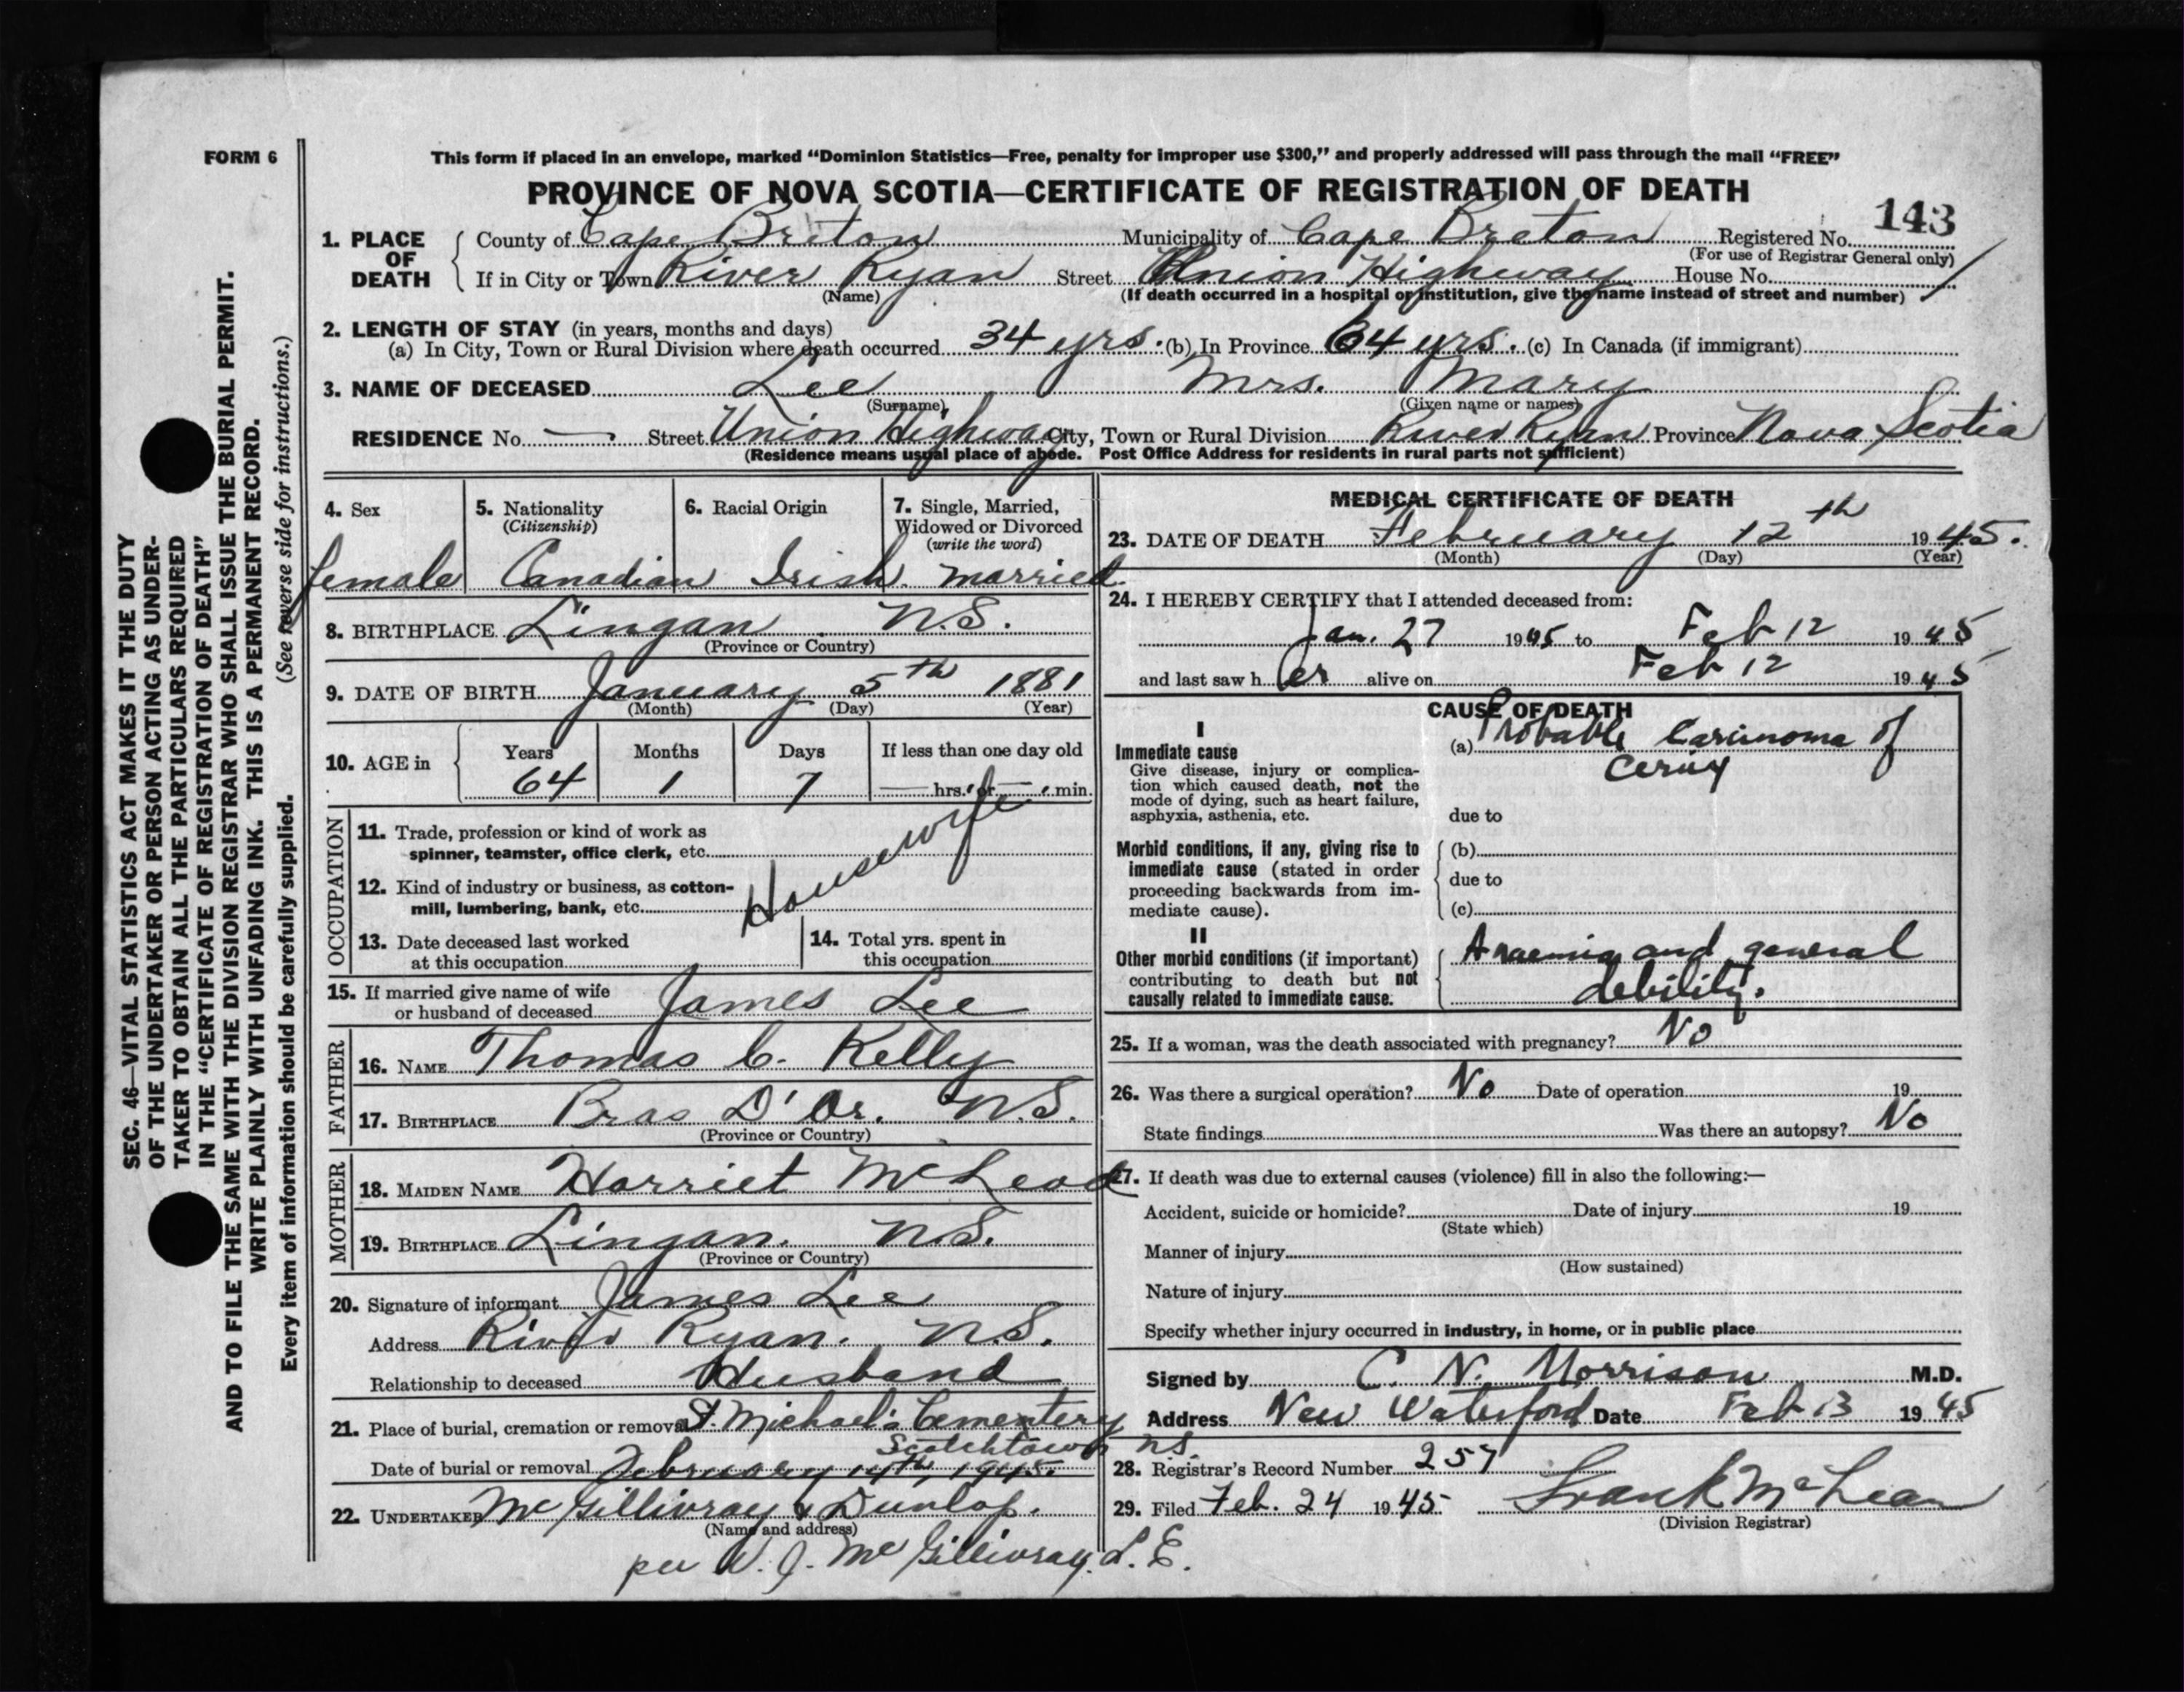 FORM 6
This form if placed in an envelope, marked "Dominion Statistics—Free, penalty for improper use $300," and properly addressed will pass through the mail "FREE"
PROVINCE OF NOVA SCOTIA—CERTIFICATE OF REGISTRATION OF DEATH
143
1. PLACE OF DEATH County of Cape Breton Municipality of Cape Breton Registered No.
(For use of Registrar General only)
If in City or Town River Ryan Street Union Highway House No.
(Name) (If death occurred in a hospital or institution, give the name instead of street and number)
2. LENGTH OF STAY (in years, months and days)
(a) In City, Town or Rural Division where death occurred 34 yrs. (b) In Province 64 yrs. (c) In Canada (if immigrant)
3. NAME OF DECEASED Lee Mrs. Mary
(Surname) (Given name or names)
RESIDENCE No. — Street Union Highway City, Town or Rural Division River Ryan Province Nova Scotia
(Residence means usual place of abode. Post Office Address for residents in rural parts not sufficient)
4. Sex 5. Nationality 6. Racial Origin 7. Single, Married,
(Citizenship) Widowed or Divorced
(write the word)
female Canadian Irish. married
8. BIRTHPLACE Lingan N.S.
(Province or Country)
9. DATE OF BIRTH January 5th 1881
(Month) (Day) (Year)
10. AGE in Years Months Days If less than one day old
64 1 7 — hrs. or — min.
OCCUPATION
11. Trade, profession or kind of work as
spinner, teamster, office clerk, etc.
Housewife
12. Kind of industry or business, as cotton-
mill, lumbering, bank, etc.
13. Date deceased last worked
at this occupation
14. Total yrs. spent in
this occupation
15. If married give name of wife
or husband of deceased James Lee
FATHER
16. NAME Thomas C. Kelly
17. BIRTHPLACE Bras D'Or. N.S.
(Province or Country)
MOTHER
18. MAIDEN NAME Harriet McLeod
19. BIRTHPLACE Lingan. N.S.
(Province or Country)
20. Signature of informant James Lee
Address River Ryan. N.S.
Relationship to deceased Husband
21. Place of burial, cremation or removal St. Michael's Cementery
Scotchtown N.S.
Date of burial or removal February 14th, 1945.
22. UNDERTAKER McGillivray & Dunlop.
(Name and address)
per W. J. McGillivray. L.E.
MEDICAL CERTIFICATE OF DEATH
23. DATE OF DEATH February 12th 1945.
(Month) (Day) (Year)
24. I HEREBY CERTIFY that I attended deceased from:
Jan. 27 1945 to Feb 12 1945
and last saw her alive on Feb 12 1945
CAUSE OF DEATH
I
Immediate cause
Give disease, injury or complica-
tion which caused death, not the
mode of dying, such as heart failure,
asphyxia, asthenia, etc.
(a) Probable Carcinoma of
Cervix
due to
Morbid conditions, if any, giving rise to
immediate cause (stated in order
proceeding backwards from im-
mediate cause).
(b)
due to
(c)
II
Other morbid conditions (if important)
contributing to death but not
causally related to immediate cause.
Anaemia and general
debility.
25. If a woman, was the death associated with pregnancy? No
26. Was there a surgical operation? No Date of operation 19
State findings Was there an autopsy? No
27. If death was due to external causes (violence) fill in also the following:—
Accident, suicide or homicide? Date of injury 19
(State which)
Manner of injury
(How sustained)
Nature of injury
Specify whether injury occurred in industry, in home, or in public place
Signed by C. N. Morrison M.D.
Address New Waterford Date Feb 13 1945
28. Registrar's Record Number 257
29. Filed Feb. 24 1945 Frank McLean
(Division Registrar)
SEC. 46—VITAL STATISTICS ACT MAKES IT THE DUTY
OF THE UNDERTAKER OR PERSON ACTING AS UNDER-
TAKER TO OBTAIN ALL THE PARTICULARS REQUIRED
IN THE "CERTIFICATE OF REGISTRATION OF DEATH"
AND TO FILE THE SAME WITH THE DIVISION REGISTRAR WHO SHALL ISSUE THE BURIAL PERMIT.
WRITE PLAINLY WITH UNFADING INK. THIS IS A PERMANENT RECORD.
Every item of information should be carefully supplied. (See reverse side for instructions.)